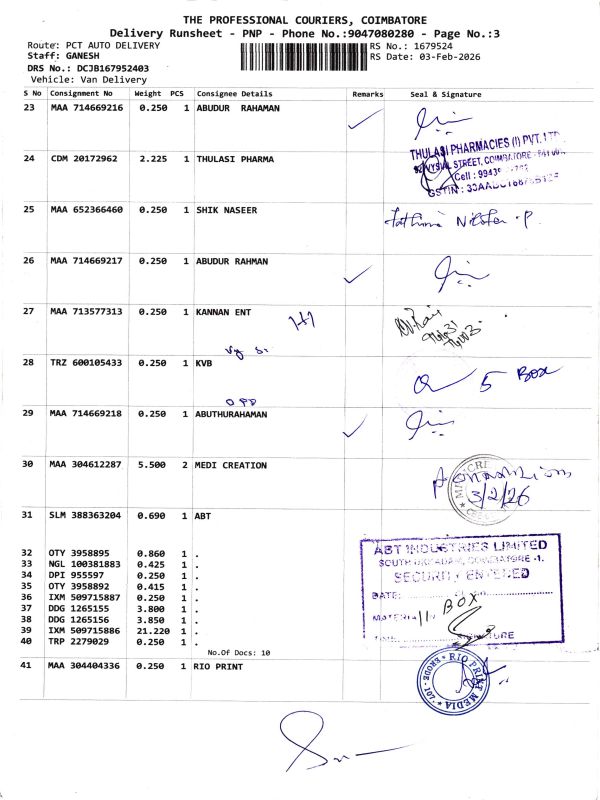 THE PROFESSIONAL COURIERS, COIMBATORE
Delivery Runsheet - PNP - Phone No.:9047080280 - Page No.:3
Route: PCT AUTO DELIVERY
Staff: GANESH
DRS No.: DCJB167952403
Vehicle: Van Delivery
RS No.: 1679524
RS Date: 03-Feb-2026
S No Consignment No Weight PCS Consignee Details Remarks Seal & Signature
23 MAA 714669216 0.250 1 ABUDUR RAHAMAN
24 CDM 20172962 2.225 1 THULASI PHARMA
THULASI PHARMACIES (I) PVT. LTD.
STREET, COIMBATORE
Cell : 9943
GSTIN :
25 MAA 652366460 0.250 1 SHIK NASEER
26 MAA 714669217 0.250 1 ABUDUR RAHMAN
27 MAA 713577313 0.250 1 KANNAN ENT
1+1
28 TRZ 600105433 0.250 1 KVB
5 BOX
OPP
29 MAA 714669218 0.250 1 ABUTHURAHAMAN
30 MAA 304612287 5.500 2 MEDI CREATION
3/2/26
31 SLM 388363204 0.690 1 ABT
32 OTY 3958895 0.860 1 .
33 NGL 100381883 0.425 1 .
34 DPI 955597 0.250 1 .
35 OTY 3958892 0.415 1 .
36 IXM 509715887 0.250 1 .
37 DDG 1265155 3.800 1 .
38 DDG 1265156 3.850 1 .
39 IXM 509715886 21.220 1 .
40 TRP 2279029 0.250 1 .
No.Of Docs: 10
ABT INDUSTRIES LIMITED
COIMBATORE -1.
SECURITY ENTERED
DATE:
MATERIAL 11 BOX
TIME SIGNATURE
41 MAA 304404336 0.250 1 RIO PRINT
RIO PRINT MEDIA